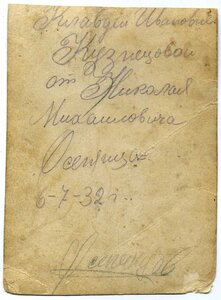 Клавдии Ивановне
Кузнецовой
от Николая
Михаиловича
6-7-32 г.